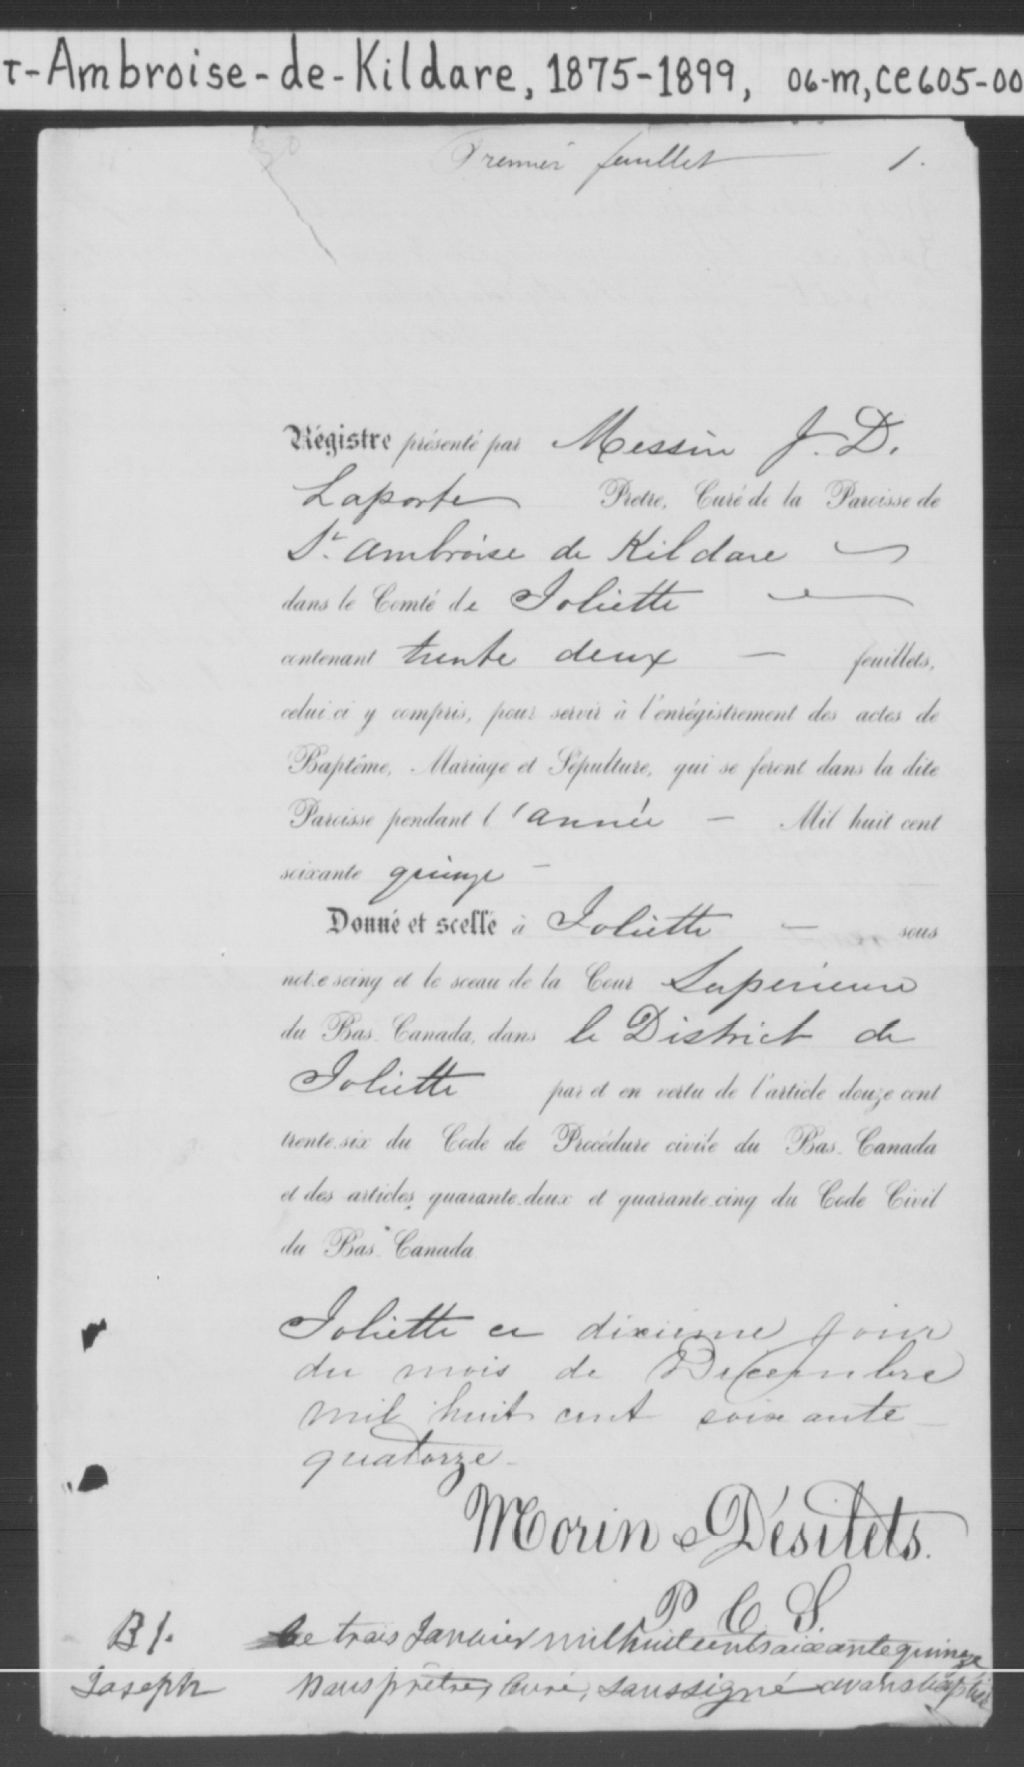 T-Ambroise-de-Kildare, 1875-1899, 06-M, CE605-00
Premier feuillet 1.
Régistre présenté par Messire J. D.
Laporte Prêtre, Curé de la Paroisse de
St. Ambroise de Kildare
dans le Comté de Joliette
contenant trente deux — feuillets,
celui-ci y compris, pour servir à l'enrégistrement des actes de
Baptême, Mariage et Sépulture, qui se feront dans la dite
Paroisse pendant l'année — Mil huit cent
soixante quinze —
Donné et scellé à Joliette — sous
notre seing et le sceau de la Cour Supérieure
du Bas-Canada, dans le District de
Joliette par et en vertu de l'article douze cent
trente-six du Code de Procédure civile du Bas-Canada
et des articles quarante-deux et quarante-cinq du Code Civil
du Bas-Canada
Joliette ce dixieme jour
du mois de Decembre
mil huit cent soixante
quatorze —
Morin & Désilets.
P C S.
B1. Le trois Janvier mil huit cent soixante quinze
Joseph Nous prêtre, Curé, soussigné avons baptisé